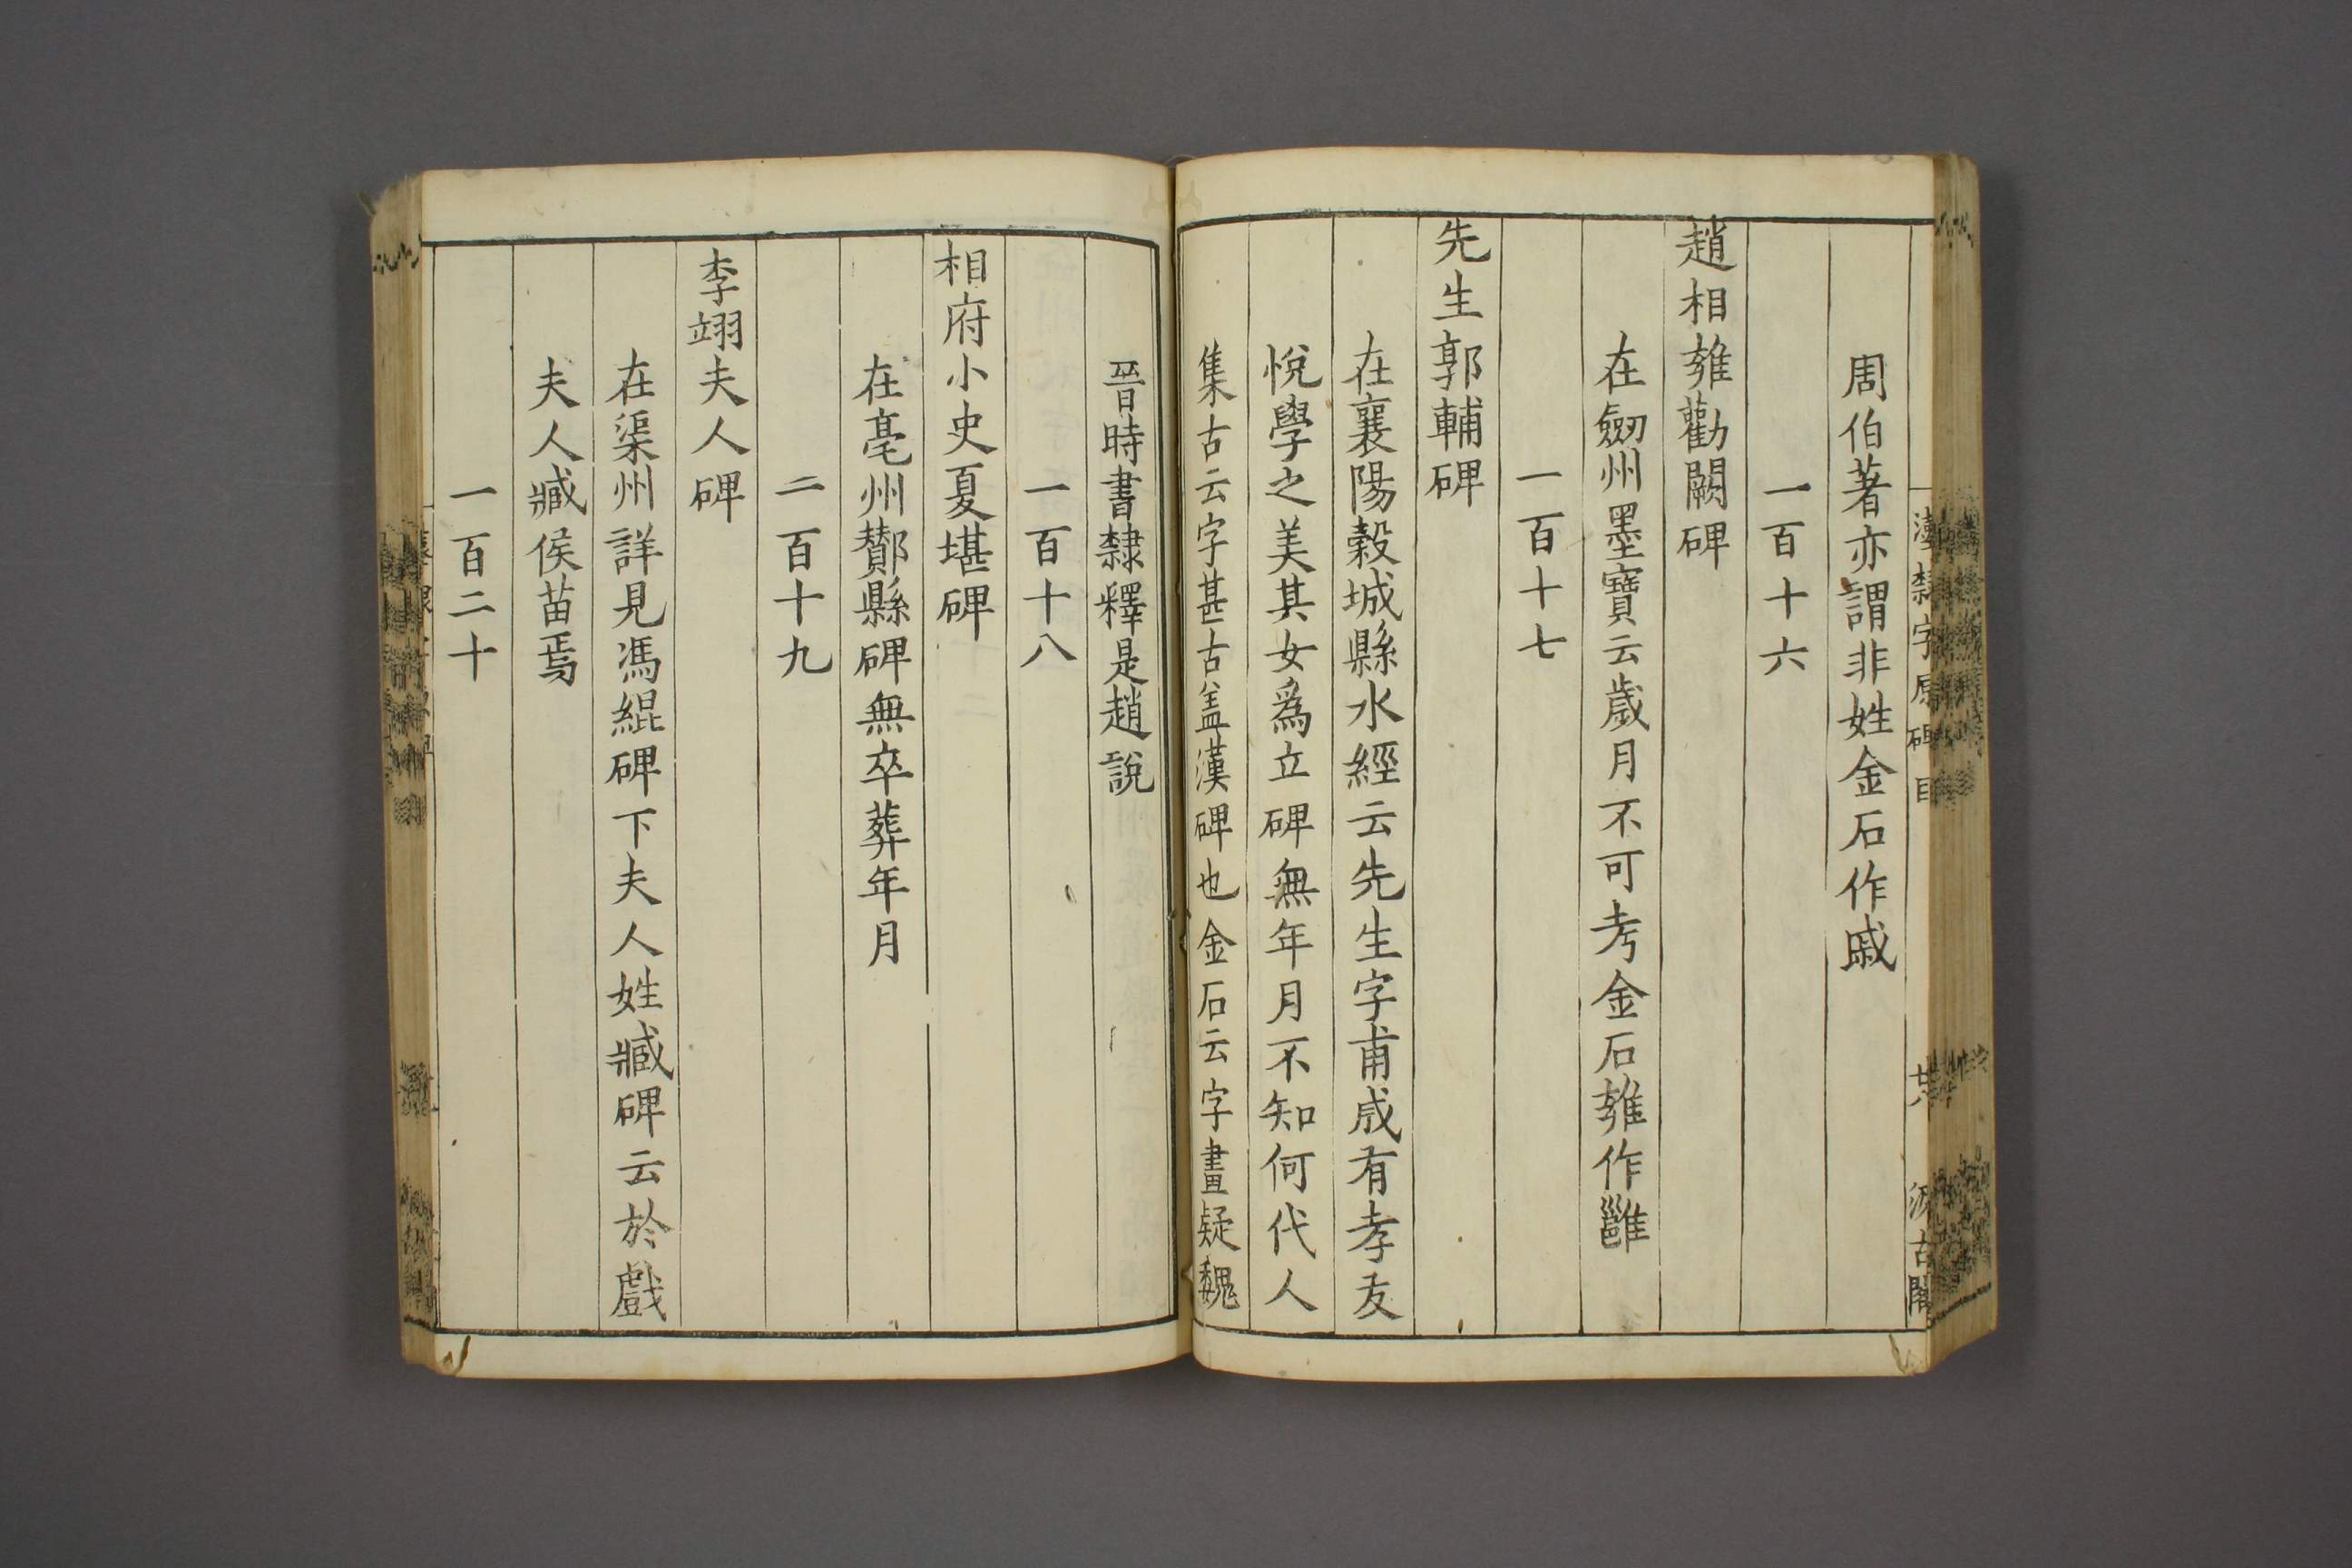 周伯著亦謂非姓金石作戚
一百十六
趙相雝勸闕碑
在劒州墨寶云歲月不可考金石雝作雝
一百十七
先生郭輔碑
在襄陽穀城縣水經云先生字甫成有孝友
悅學之美其女爲立碑無年月不知何代人
集古云字甚古盖漢碑也金石云字畫疑魏
晉時書隸釋是趙說
一百十八
相府小史夏堪碑
在亳州酇縣碑無卒葬年月
二百十九
李翊夫人碑
在渠州詳見馮緄碑下夫人姓臧碑云於戲
夫人臧侯苗焉
一百二十
漢隸字原碑目
汲古閣